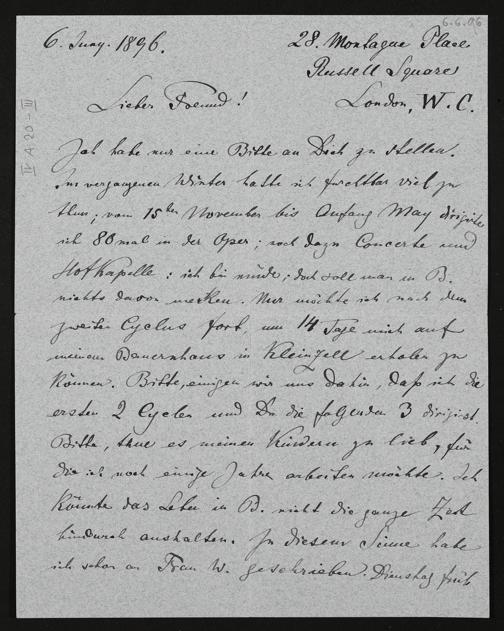 6.6.96
6. Juny. 1896.
28. Montague Place
Russell Square
London, W. C.
IV A 20 - III
Lieber Freund!
Ich habe nur eine Bitte an Dich zu stellen.
Im vergangenen Winter hatte ich furchtbar viel zu
thun; vom 15ten November bis Anfang May dirigirte
ich 80 mal in der Oper; noch dazu Concerte und
Hofkapelle: ich bin müde; doch soll man in B.
nichts davon merken. Nur möchte ich nach dem
zweiten Cyclus fort, um 14 Tage mich auf
meinem Bauernhaus in Kleinzell erholen zu
können. Bitte, einigen wir uns dahin, daß ich die
ersten 2 Cyclen und Du die folgenden 3 dirigirst.
Bitte, thue es meinen Kindern zu lieb, für
die ich noch einige Jahre arbeiten möchte. Ich
könnte das Leben in B. nicht die ganze Zeit
hindurch aushalten. In diesem Sinne habe
ich schon an Frau W. geschrieben. Dienstag früh